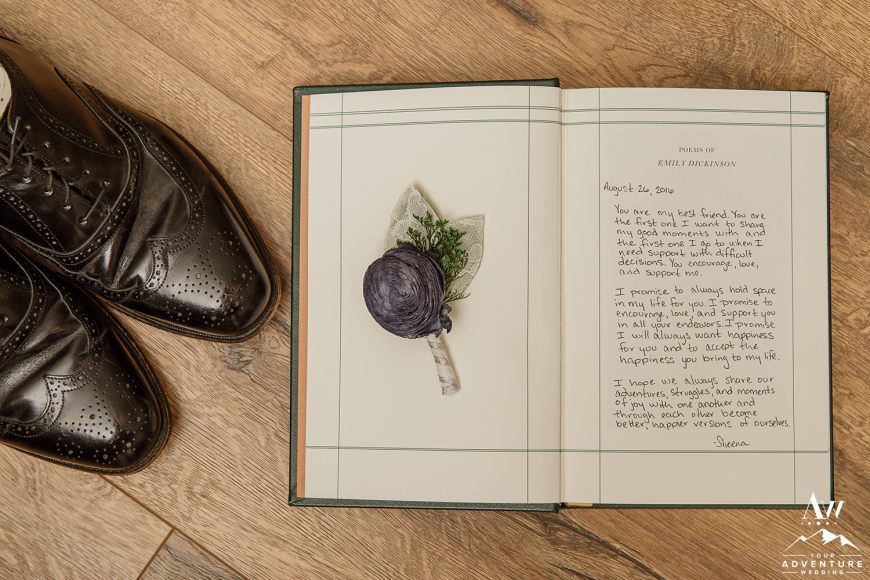 POEMS OF
EMILY DICKINSON
August 26, 2016
You are my best friend. You are
the first one I want to share
my good moments with and
the first one I go to when I
need support with difficult
decisions. You encourage, love,
and support me.
I promise to always hold space
in my life for you. I promise to
encourage, love, and support you
in all your endeavors. I promise
I will always want happiness
for you and to accept the
happiness you bring to my life.
I hope we always share our
adventures, struggles, and moments
of joy with one another and
through each other become
better, happier versions of ourselves.
-Sheena
AW
YOUR
ADVENTURE
WEDDING